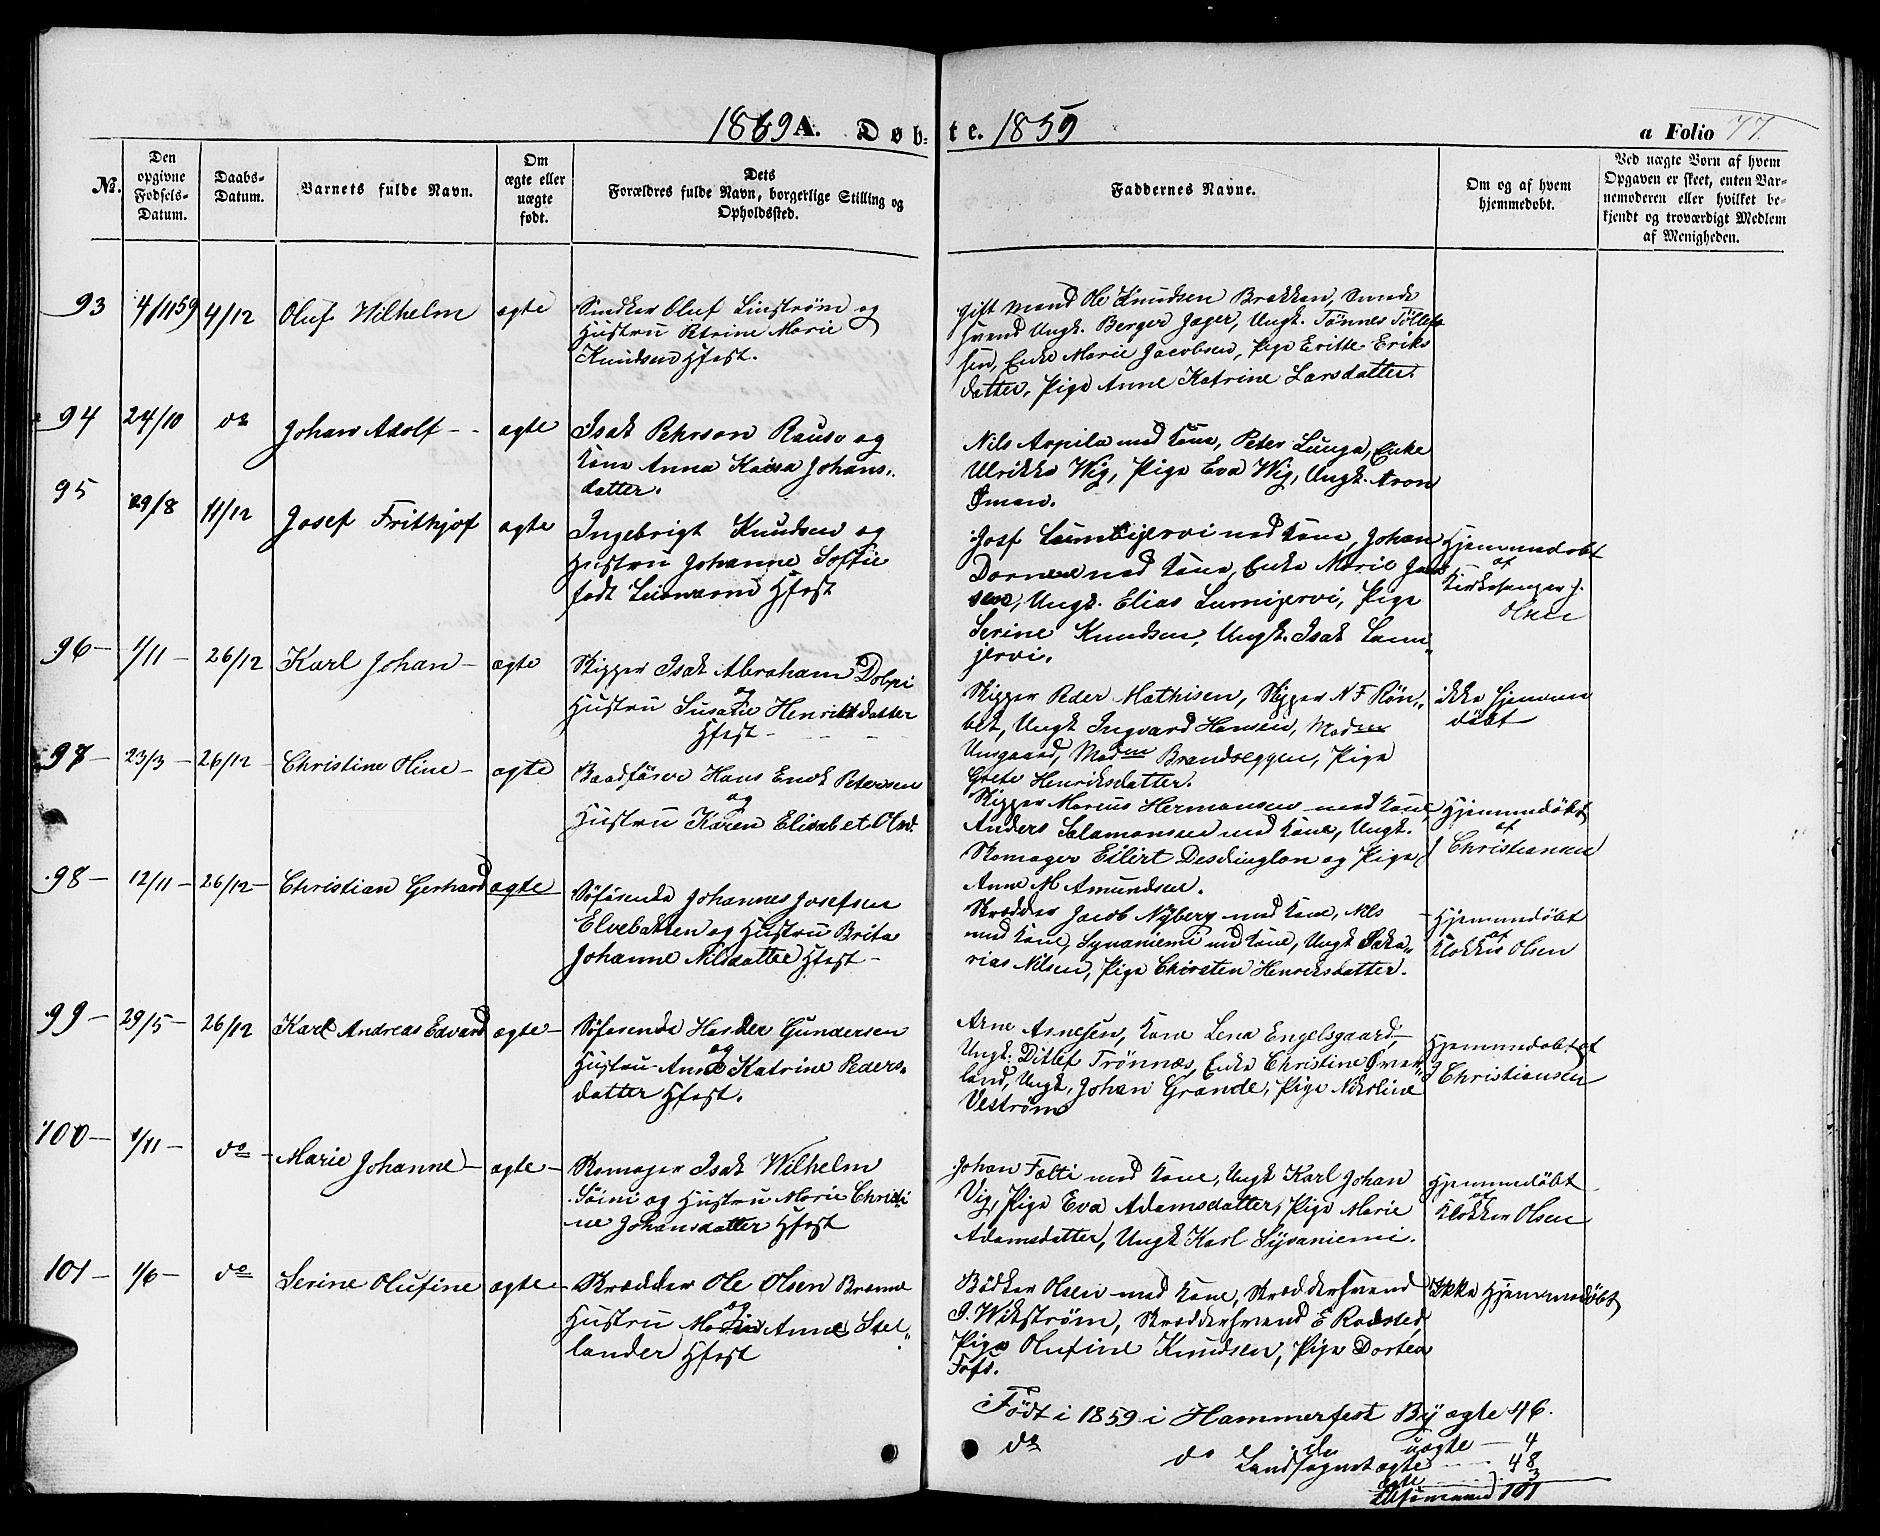 1859 A. Døb-
te. 1859
a Folio 77.
No.
Den opgivne Fødsels-Datum.
Daabs-Datum.
Barnets fulde Navn.
Om ægte eller uægte født.
Dets
Forældres fulde Navn, borgerlige Stilling og
Opholdssted.
Faddernes Navne.
Om og af hvem
hjemmedøbt.
Ved uægte Børn af hvem
Opgaven er skeet, enten Bar-
nemoderen eller hvilket be-
kjendt og troværdigt Medlem
af Menigheden.
93 4/11 59 4/12 Oluf Wilhelm ægte
Snedker Oluf Linstrøm og
Hustru Petrine Marie
Knudsen Hfest.
Gift Mand Ole Knudsen Brakken, Smede
svend Ungk. Berger Jæger, Ungk. Tönnes Töllef
sen, Enke Marie Jacobsen, Pige Britte Eriks
datter, Pige Anne Katrine Larsdatter.
94 24/10 do Johan Adolf - - ægte
Isak Pehrson Rauso og
Kone Anna Kaisa Johans-
datter.
Nils Aspila med Kone, Peter Lunga, Enke
Ulrikke Wig, Pige Eva Wig, Ungk. Aron
Öman.
95 29/8 11/12 Josef Frithjof ægte
Ingebrigt Knudsen og
Hustru Johanne Sofie
født Hfest
Josf Lumijervi med Kone, Johan
med Kone, Enke Marie
sen, Ungk. Elias Lumijervi, Pige
Serine Knudsen, Ungk. Isak Lumi
jervi.
Hjemmedøbt
af
Kirkesanger J.
Olsen
96 - 1/11 - 26/12 Karl Johan - ægte
Skipper Isak Abraham Dolpi
og
Hustru Susanne Henriksdatter
Hfest -
Skipper Peder Mathisen, Skipper N F Rön-
bek, Ungk Ingvard Hansen, Madm
Unsgaard, Madm Brandseggen, Pige
Grete Henriksdatter.
ikke hjemme
döbt
97 - 23/3 - 26/12 - Christine Oline - ægte
Baadförer Hans Enok Petersen
og
Hustru Karen Elisabet Olsd.
Skipper Marius Hermansen med Kone
Anders Salamonsen med Kone, Ungk.
Skomager Eilert Desdington og Pige
Anne M Amundsen.
Hjemmedøbt
af
Christiansen
98 - 12/11 - 26/12 - Christian Gerhard ægte
Søfarende Johannes Josefsen
Elvebakken og Hustru Brita
Johanne Nilsdatter Hfest -
Skrædder Jacob Nyberg med Kone, Nils
med Kone, Syvaniemi med Kone, Ungk Saka-
rias Nilsen, Pige Chirsten Henriksdatter.
Hjemmedøbt
af
Klokker Olsen
99 - 29/5 - 26/12 Karl Andreas Edvard ægte -
Søfarende Gundersen
og
Hustru Anne Katrine Peders-
datter Hfest.
Arne Arnesen, Kone Lena Engelsgaard,
Ungk. Ditlef Trönnæs, Enke Christine Over-
land, Ungk. Johan Grande, Pige Nikoline
Veström
Hjemmedøbt af
Christiansen
100 - 1/11 - do - Marie Johanne - ægte -
Skomager Isak Wilhelm
Söini og Hustru Marie Christi
ne Johansdatter Hfest
Johan Fælti med Kone, Ungk Karl Johan
Vig, Pige Eva Adamsdatter, Pige Marie
Adamsdatter, Ungk Karl Syvaniemi.
Hjemmedøbt
af
Klokker Olsen
101 - 1/6 - do Serine Olufine ægte -
Skrædder Ole Olsen Bræmd
og
Hustru Anne Stel-
lander Hfest
Bödker Olsen med Kone, Skræddersvend
J. Wikström, Skræddersvend E Rodsted,
Pige Olufine Knudsen, Pige Dortea
Foss.
Ikke Hjemmedøbt
Födt i 1859 i Hammerfest By ægte 46.
do do uægte - 4
Landsognet ægte 48
uægte 3
Tilsammen 101